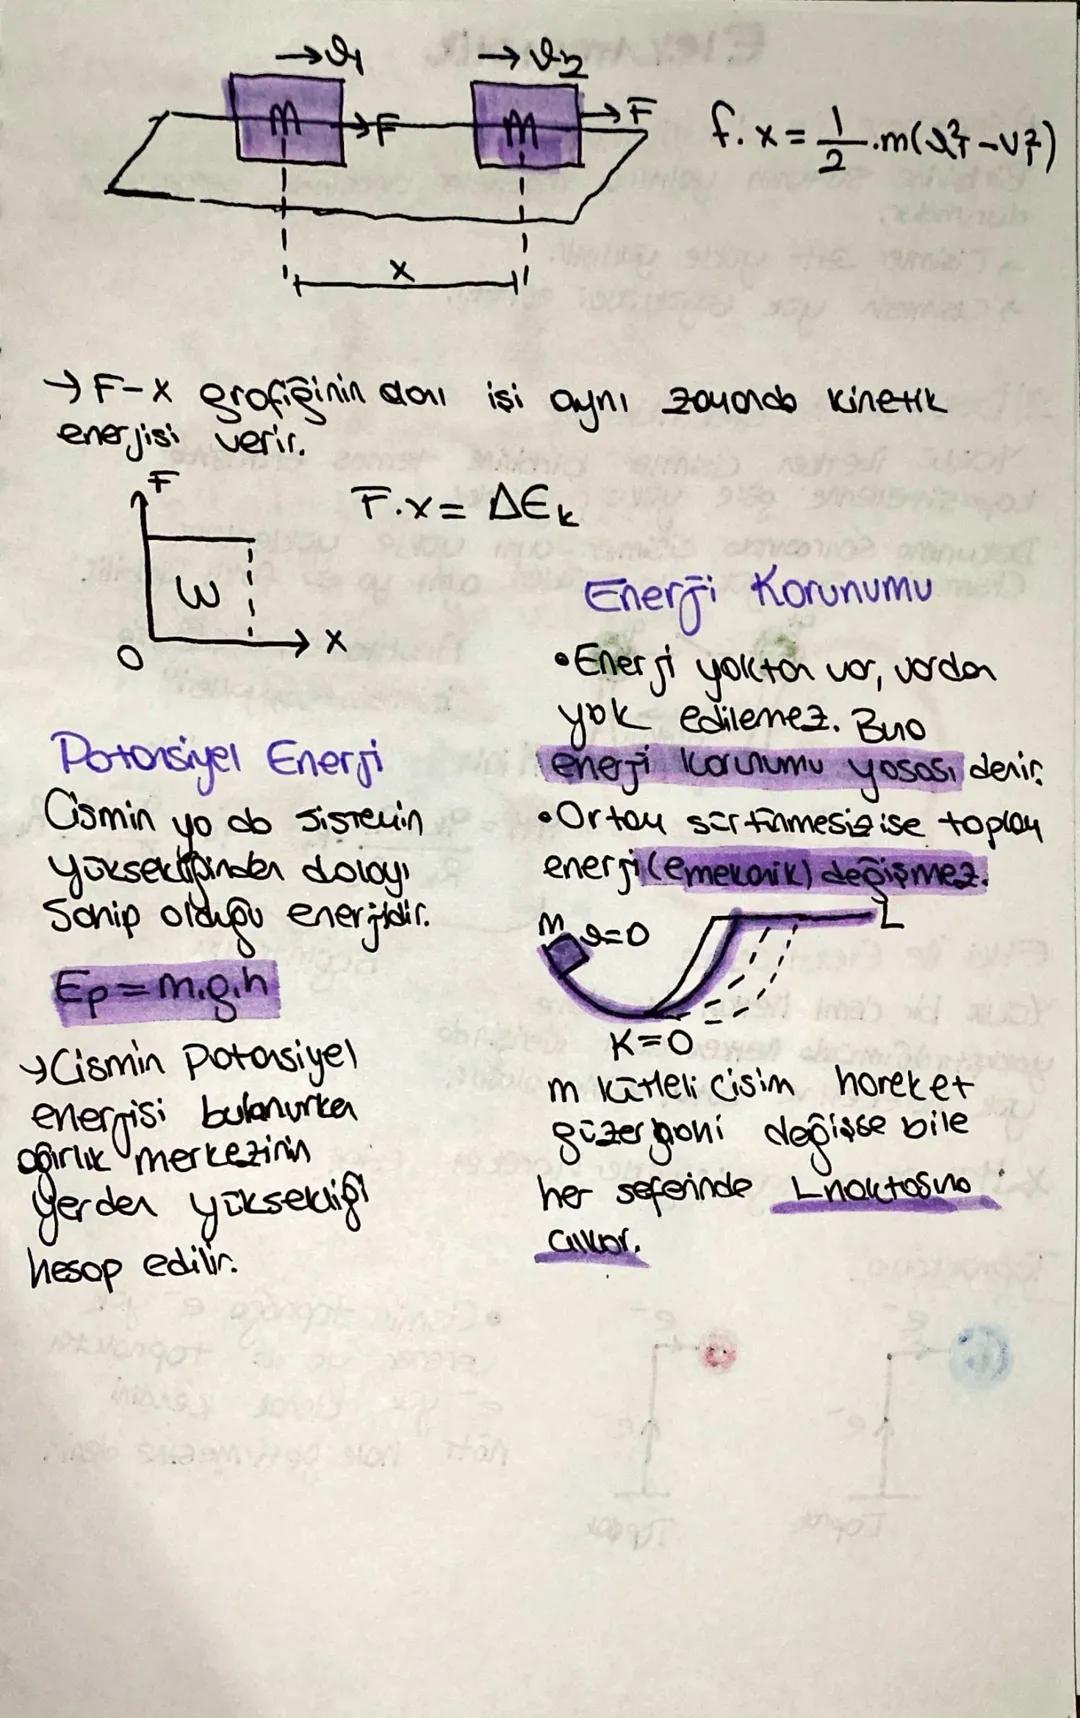 →ϑ1 →ϑ2
m →F m →F
F.x = 1/2 .m(ϑ²-V²)
x
→ F-x grafiğinin alanı işi aynı zamanda kinetik
enerjisi verir.
F
F.x = ΔEk
W
O x
Potansiyel Enerji
Cismin ya da sistemin
yüksekliğinden dolayı
Sahip olduğu enerjidir.
Ep = m.g.h
→ Cismin Potansiyel
enerjisi bulunurken
ağırlık merkezinin
yerden yüksekliği
hesap edilir.
Enerji Korunumu
• Enerji yoktan var, vardan
yok edilemez. Buna
enerji korunumu yasası denir.
• Ortam sürtünmesiz ise toplam
enerji (emekanik) değişmez.
m ϑ=0 L
K=0
m kütleli cisim hareket
güzergahı değişse bile
her seferinde L noktasına
çıkar.